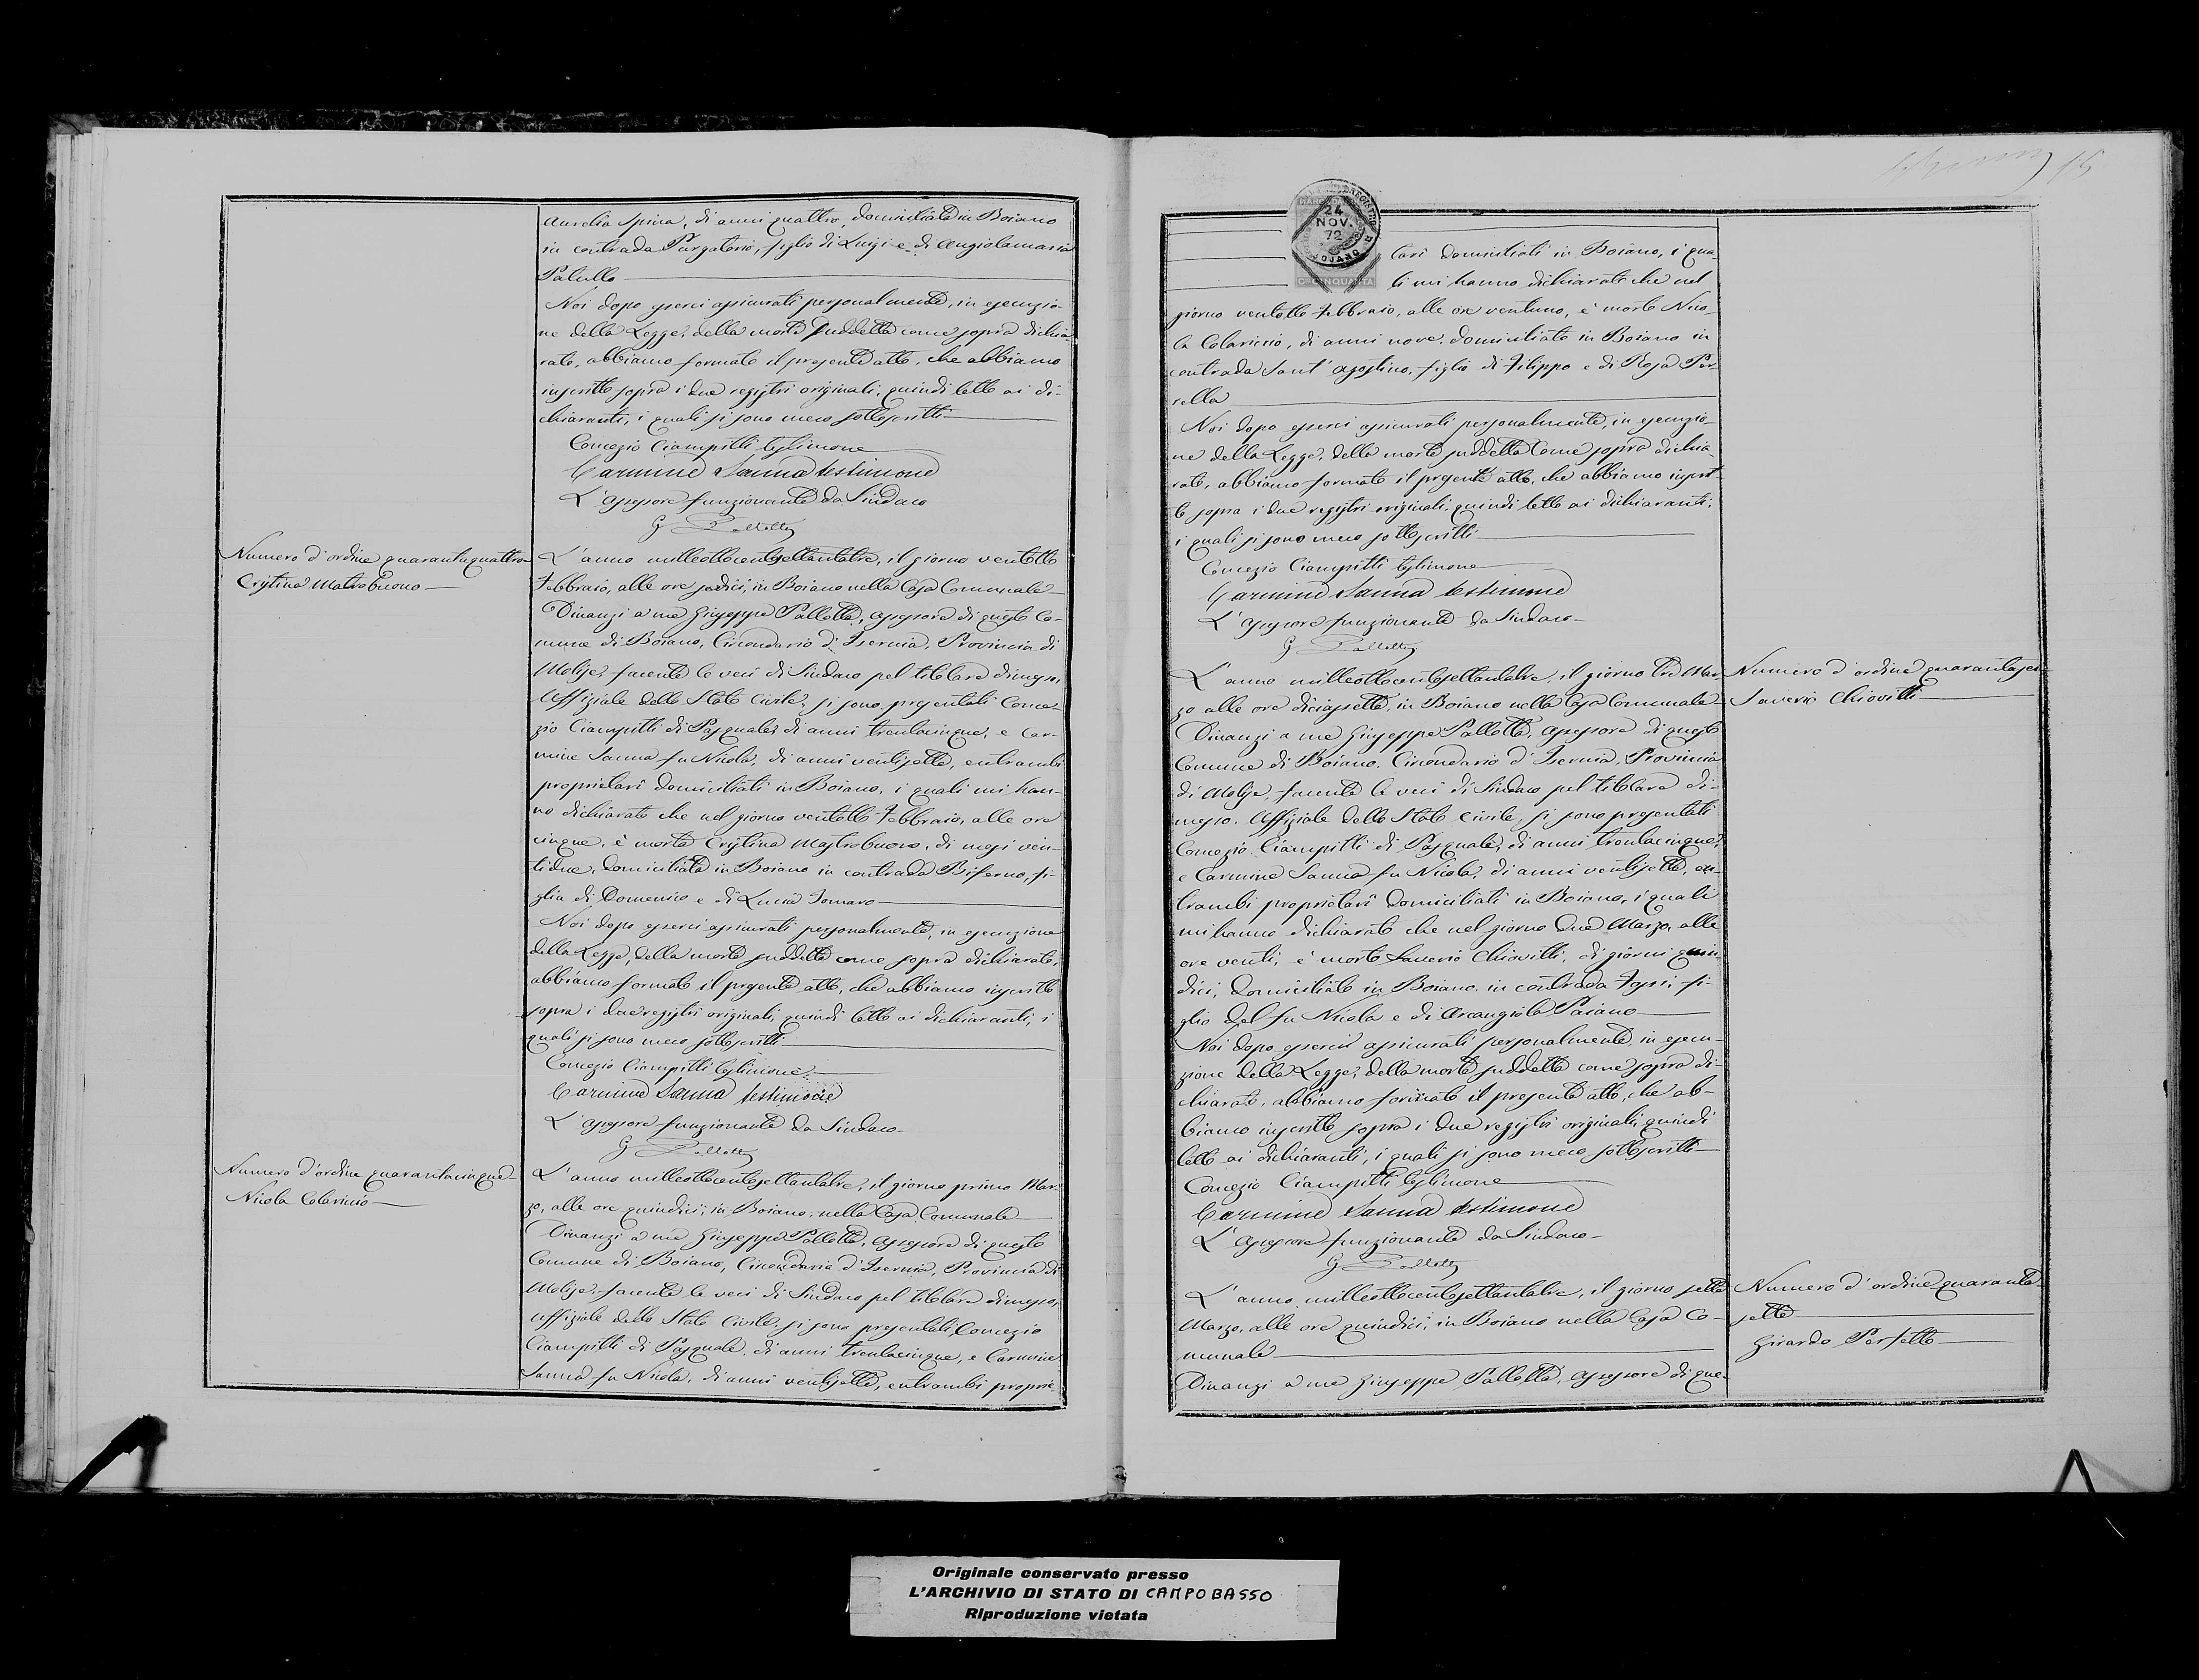 Aurelia Spina, di anni quattro, domiciliata in Boiano
in contrada Purgatorio, figlia di Luigi e di Angiolamaria
Noi dopo esserci assicurati personalmente, in esecuzio-
ne della Legge, della morte suddetta come sopra dichia-
rata, abbiamo formato il presente atto, che abbiamo
inscritto sopra i due registri originali, quindi letto ai di-
chiaranti, i quali si sono meco sottoscritti
Concezio Ciampitti testimone
Carmine Sanna testimone
L'assessore funzionante da Sindaco
G Pallotta
Numero d'ordine quarantaquattro
Cristina Mastrobuono
L'anno milleottocentosettantatre, il giorno ventotto
Febbraio, alle ore sedici, in Boiano nella Casa Comunale
Dinanzi a me Giuseppe Pallotta, assessore di questo Co-
mune di Boiano, Circondario d'Isernia, Provincia di
Molise, facente le veci di Sindaco pel titolare dimesso,
Uffiziale dello Stato Civile, si sono presentati Conce-
zio Ciampitti di Pasquale, di anni trentacinque, e Car-
mine Sanna fu Nicola, di anni ventisette, entrambi
proprietari domiciliati in Boiano, i quali mi han-
no dichiarato che nel giorno ventotto Febbraio, alle ore
cinque, è morta Cristina Mastrobuono, di mesi ven-
tidue, domiciliata in Boiano in contrada Biferno, fi-
glia di Domenico e di Lucia
Noi dopo esserci assicurati personalmente, in esecuzione
della Legge, della morte suddetta come sopra dichiarata,
abbiamo formato il presente atto, che abbiamo inscritto
sopra i due registri originali, quindi letto ai dichiaranti, i
quali si sono meco sottoscritti
Concezio Ciampitti testimone
Carmine Sanna testimone
L'assessore funzionante da Sindaco
G Pallotta
Numero d'ordine quarantacinque
Nicola Colariccio
L'anno milleottocentosettantatre, il giorno primo Mar-
zo, alle ore quindici, in Boiano, nella Casa Comunale
Dinanzi a me Giuseppe Pallotta, assessore di questo
Comune di Boiano, Circondario d'Isernia, Provincia di
Molise, facente le veci di Sindaco pel titolare dimesso,
Uffiziale dello Stato Civile, si sono presentati Concezio
Ciampitti di Pasquale, di anni trentacinque, e Carmine
Sanna fu Nicola, di anni ventisette, entrambi proprie-
15
24
NOV.
72
BOJANO
CINQUANTA
tari domiciliati in Boiano, i qua-
li mi hanno dichiarato che nel
giorno ventotto Febbraio, alle ore ventuno, è morto Nico-
la Colariccio, di anni nove, domiciliato in Boiano in
contrada Sant'Agostino, figlio di Filippo e di Rosa Per-
rella
Noi dopo esserci assicurati personalmente, in esecuzio-
ne della Legge, della morte suddetta come sopra dichia-
rata, abbiamo formato il presente atto, che abbiamo inscrit-
to sopra i due registri originali, quindi letto ai dichiaranti,
i quali si sono meco sottoscritti
Concezio Ciampitti testimone
Carmine Sanna testimone
L'assessore funzionante da Sindaco
G Pallotta
L'anno milleottocentosettantatre, il giorno tre Mar-
zo alle ore diciassette, in Boiano nella Casa Comunale
Dinanzi a me Giuseppe Pallotta, assessore di questo
Comune di Boiano, Circondario d'Isernia, Provincia
di Molise, facente le veci di Sindaco pel titolare di-
messo, Uffiziale dello Stato Civile, si sono presentati
Concezio Ciampitti di Pasquale, di anni trentacinque,
e Carmine Sanna fu Nicola, di anni ventisette, en-
trambi proprietari domiciliati in Boiano, i quali
mi hanno dichiarato che nel giorno due Marzo, alle
ore venti, è morto Saverio Chiovitti, di giorni quin-
dici, domiciliato in Boiano, in contrada fi-
glio del fu Nicola e di Arcangiola Paiano
Noi dopo esserci assicurati personalmente, in esecu-
zione della Legge, della morte suddetta come sopra di-
chiarata, abbiamo formato il presente atto, che ab-
biamo inscritto sopra i due registri originali, quindi
letto ai dichiaranti, i quali si sono meco sottoscritti
Concezio Ciampitti testimone
Carmine Sanna testimone
L'assessore funzionante da Sindaco
G Pallotta
L'anno milleottocentosettantatre, il giorno sette
Marzo, alle ore quindici, in Boiano nella Casa Co-
munale
Dinanzi a me Giuseppe Pallotta, assessore di que-
Numero d'ordine quarantasei
Saverio Chiovitti
Numero d'ordine quaranta-
sette
Girardo Perfetto
Originale conservato presso
L'ARCHIVIO DI STATO DI CAMPOBASSO
Riproduzione vietata